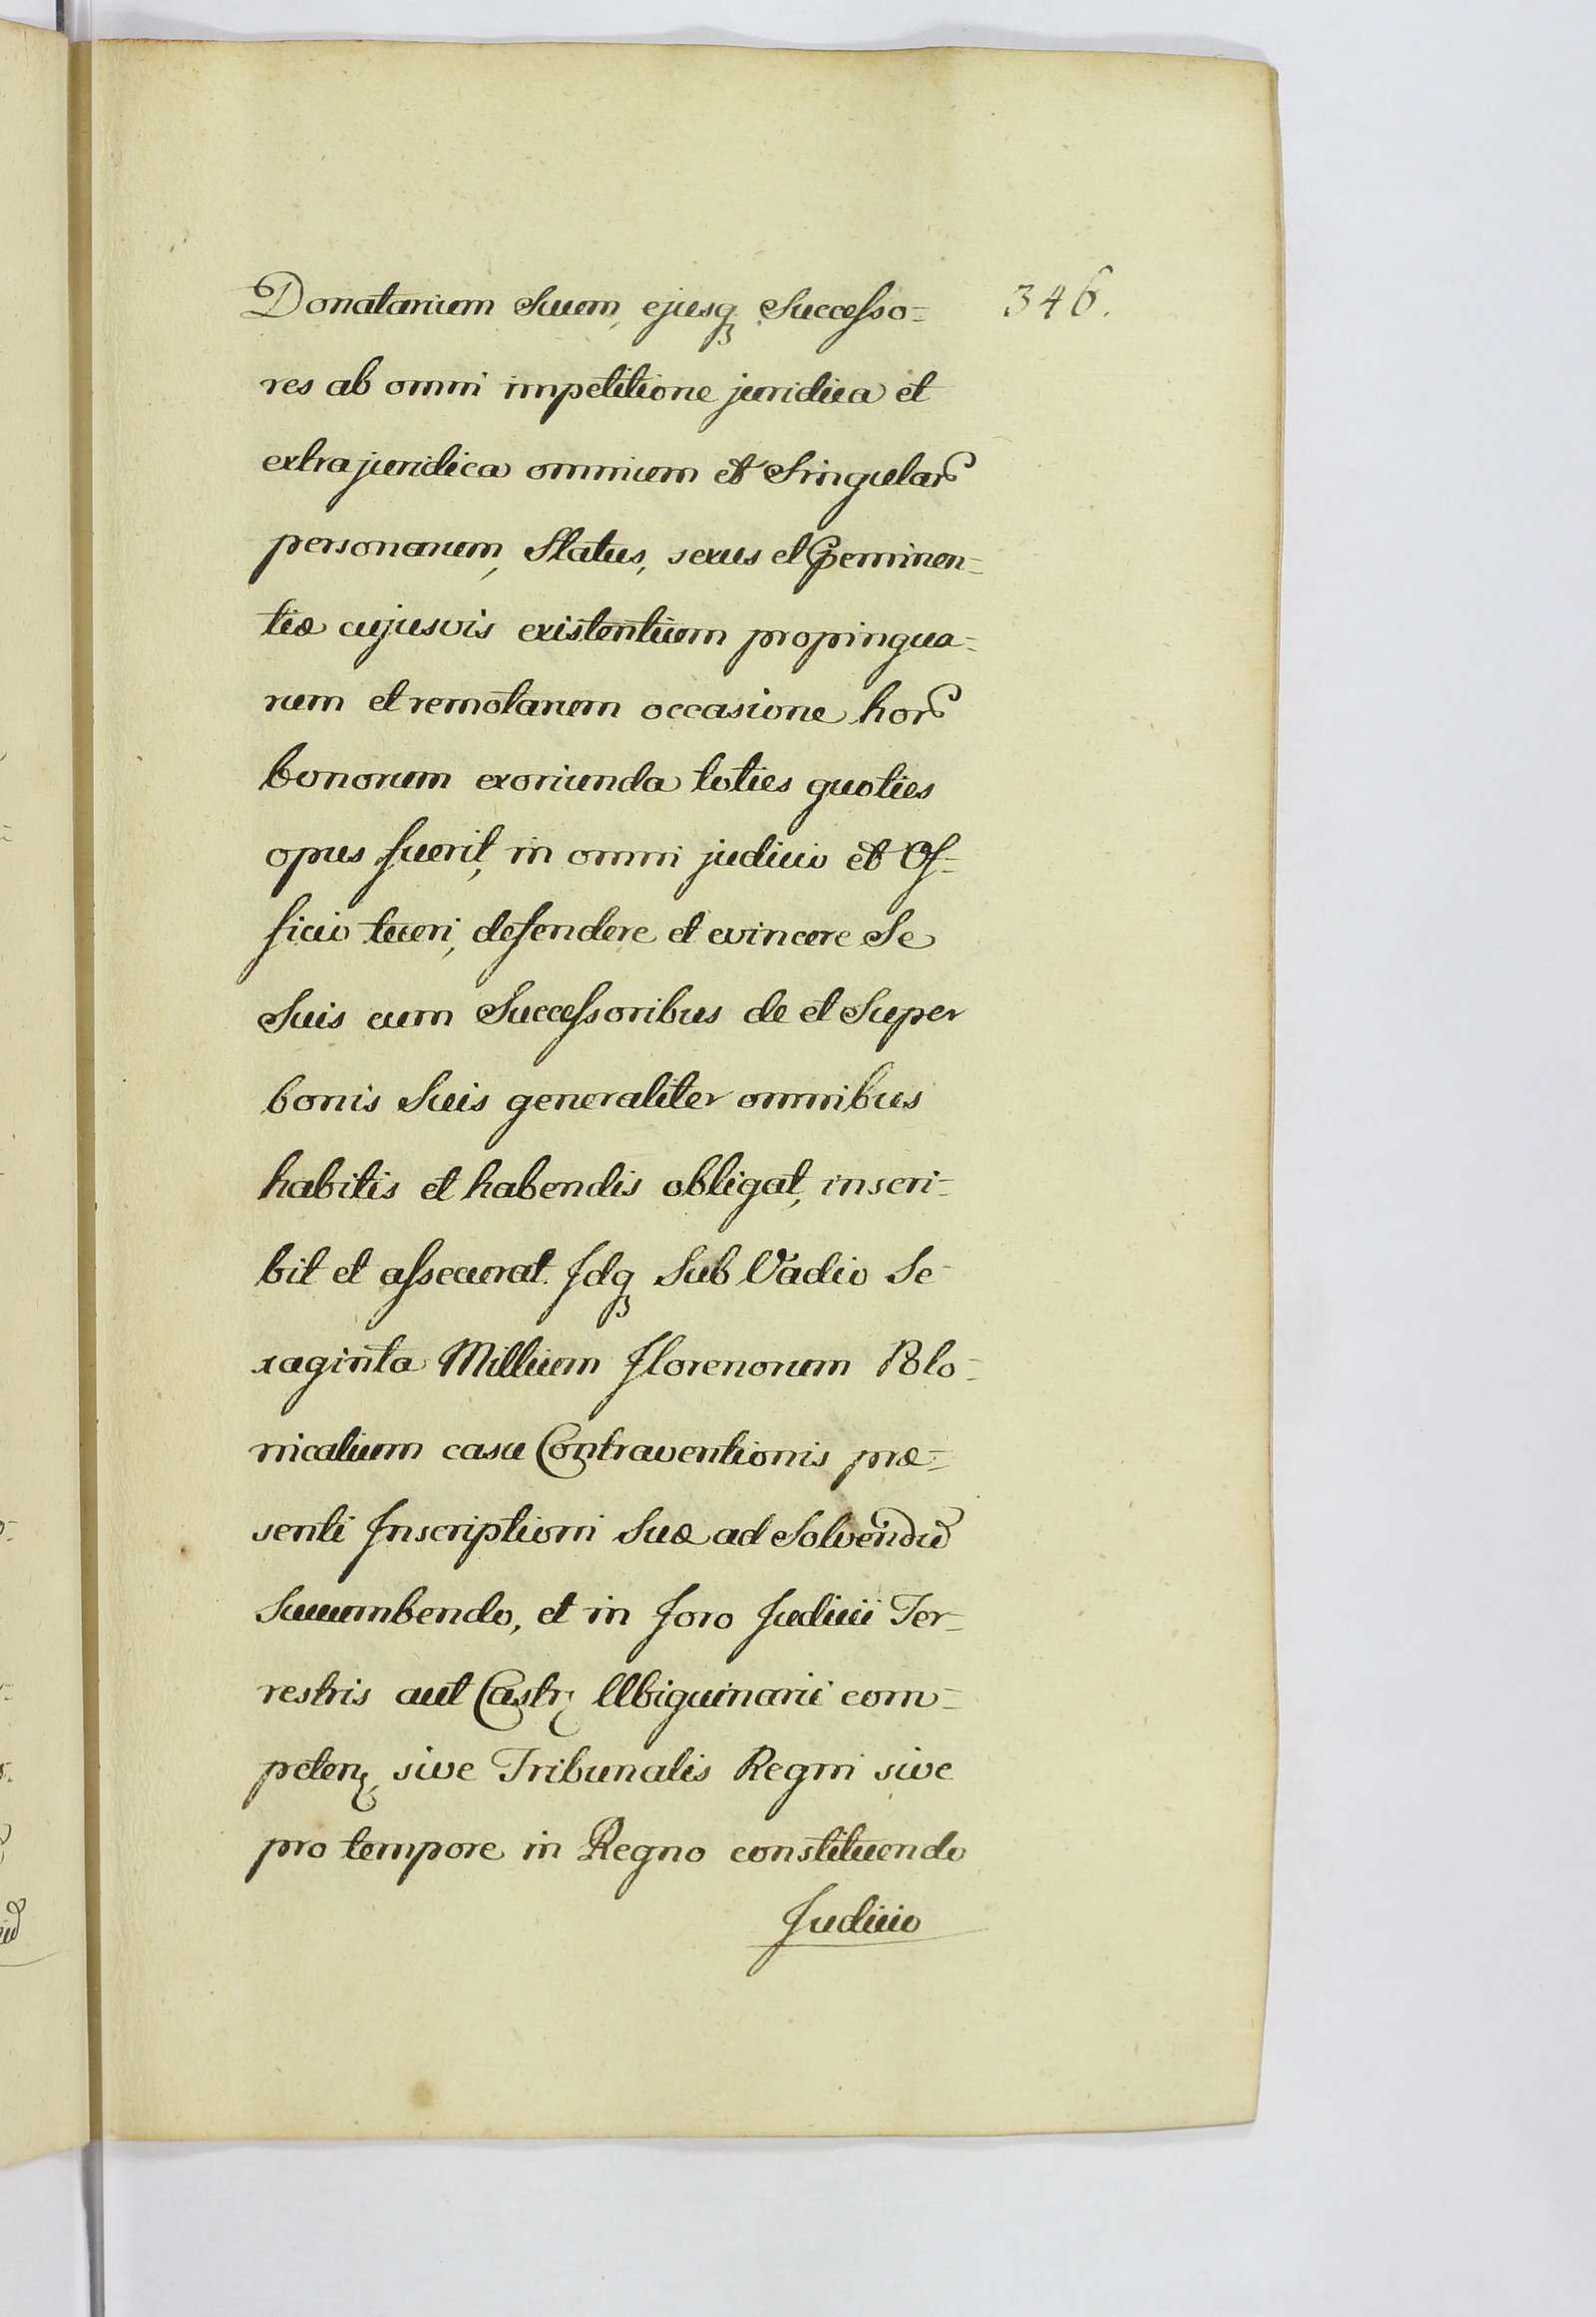 Donatarium Suum, ejusq Successo=
346.
res ab omni impetitione juridica et
extrajuridica omnium et Singular
personarum, Status, sexus et Pṕeminen=
tiæ cujusvis existentium propinqua=
rum et remotarum occasione hor
bonorum exoriunda toties quoties
opus fuerit, in omni judicio et Of=
ficio tueri, defendere et evincere Se
Suis cum Successoribus de et Super
bonis Suis generaliter omnibus
habitis et habendis obligat, inscri=
bit et assecurat. Idq Sub Vadio Se=
xaginta Millium Florenorum Polo=
nicalium casu Contraventionis præ=
senti Inscriptioni Suæ ad Solvendū
Succumbendo, et in Foro Judicii Ter=
restris aut Castr: Ubiquinarii com=
peten: sive Tribunalis Regni sive
pro tempore in Regno constituendo
Judicio